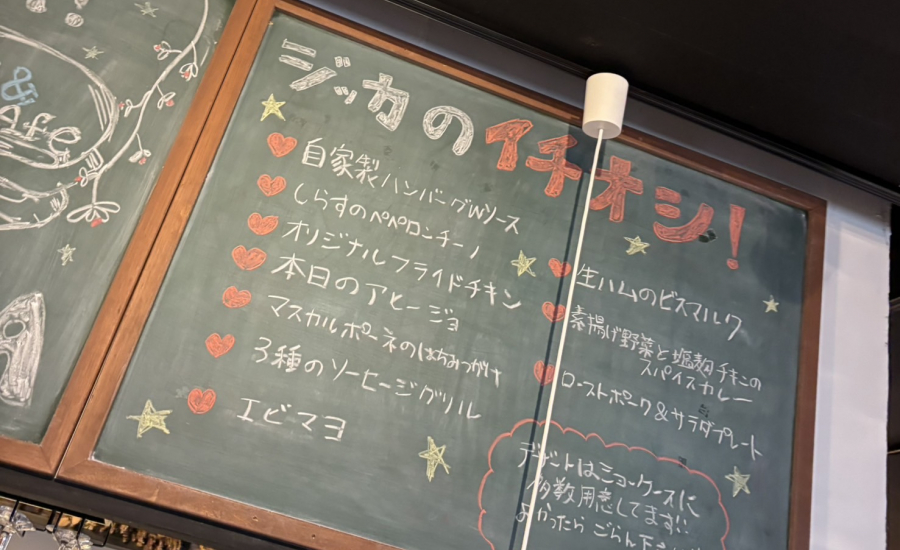 &
afe
ジッカのイチオシ!
自家製ハンバーグWソース
しらすのペペロンチーノ
オリジナルフライドチキン
本日のアヒージョ
マスカルポーネのはちみつがけ
3種のソーセージグリル
エビマヨ
生ハムのビスマルク
素揚げ野菜と塩麹チキンの
スパイスカレー
ローストポーク&サラダプレート
デザートはショーケースに
多数用意してます!!
よかったらごらん下さい